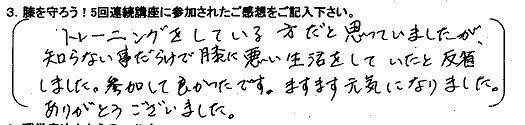 3. 膝を守ろう！5回連続講座に参加されたご感想をご記入下さい。
トレーニングをしている方だと思っていましたが、
知らない事だらけで膝に悪い生活をしていたと反省
しました。参加して良かったです。ますます元気になりました。
ありがとうございました。